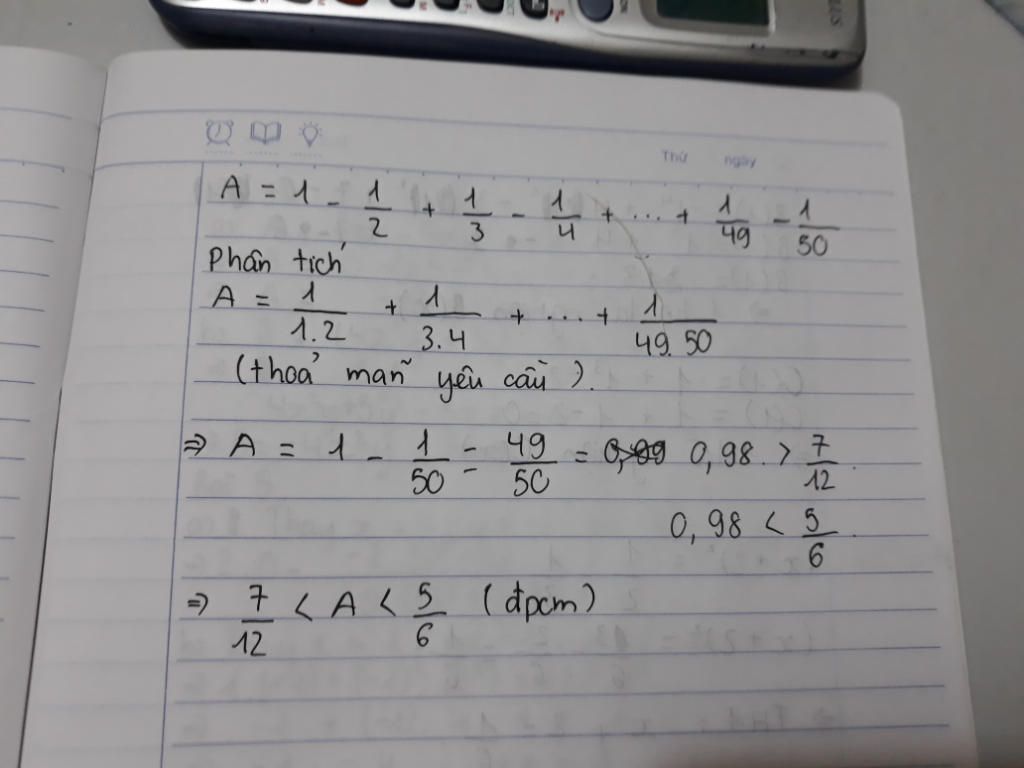 Thứ ngày
A = 1 - 1/2 + 1/3 - 1/4 + ... + 1/49 - 1/50
Phân tích
A = 1/1.2 + 1/3.4 + ... + 1/49.50
(thoả mãn yêu cầu).
⇒ A = 1 - 1/50 = 49/50 = 0,98. > 7/12.
0,98 < 5/6.
⇒ 7/12 < A < 5/6 (đpcm)